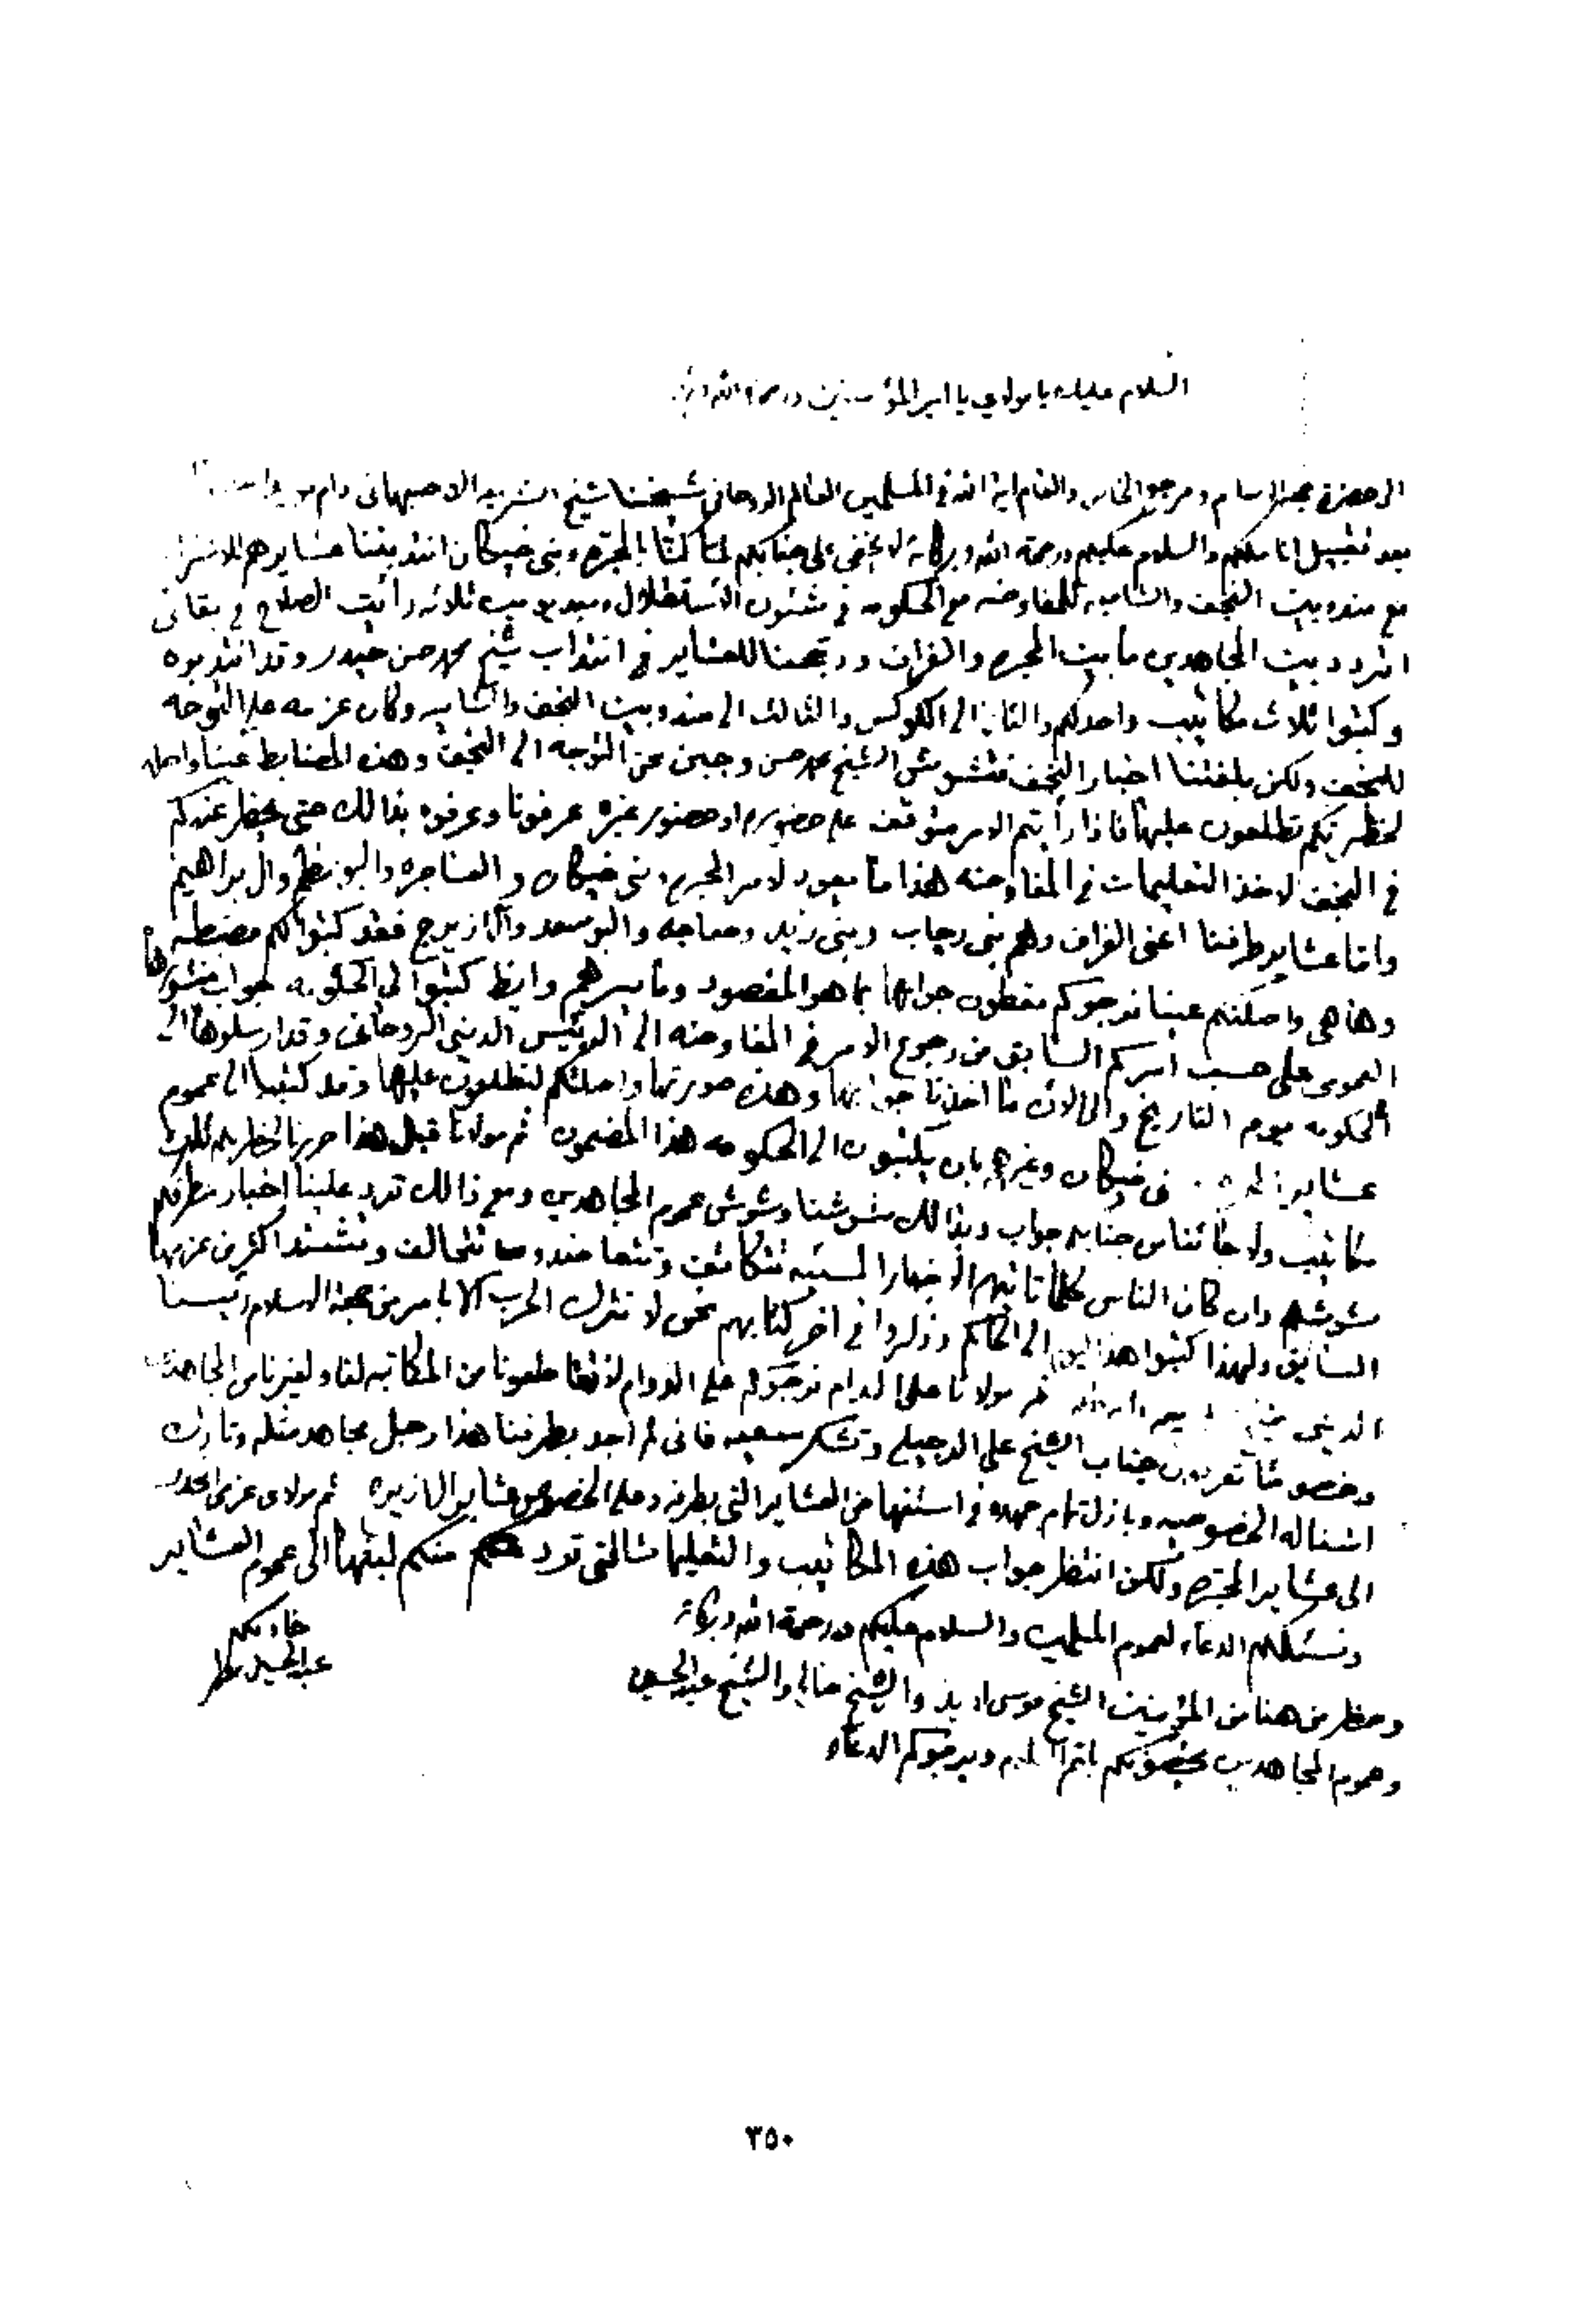 السلام عليك يا مولاي يا امير المؤمنين ورحمة الله
الى حضرة حجة الاسلام ومرجع الخاص والعام اية الله في المسلمين العالم الروحاني شيخنا شيخ الشريعه الاصبهاني دام
بعد تقبيل اناملكم والسلام عليكم ورحمة الله وبركاته لا يخفى على جنابكم لما كنا بالمجره وبني خيكان انتدبتنا عشايرهم
مع مندوبين النجف والشاميه للمفاوضه مع الحكومه في شئون الأستقلال وبعد يومين ثلاثه رأيت الصلاح في بقائي
اتردد بين المجاهدين ما بين المجره والغراف ورجحنا للعشاير في انتداب شيخ محمد حسن حيدر وقد انتدبوه
وكتبوا ثلاث مكاتيب واحدلكم والثاني الى الكوكس والثالث الى مندوبين النجف والشاميه وكان عزمه على التوجه
للنجف ولكن بلغتنا اخبار النجف فتشوش الشيخ محمد حسن وجبن عن التوجه الى النجف وهذه المضابط عينا واصله
لحظرتكم تطلعون عليها فاذا رأيتم الامر متوقف على حضوره او حضور غيره عرفونا وعرفوه بذالك حتى يحظر عندكم
في النجف لاخذ التعليمات في المفاوضه هذا ما يعود لامر المجره وبني خيكان والعساجره والبو نظم وال براهيم
واما عشاير طرفنا اعنى الغراف وهم بني ركاب وبني زيد وخفاجه والبو سعد والازيرج فقد كتبوا لكم مضبطه
وها هي واصلتكم عينا نرجوكم تعطون جوابها بما هو المقصود وما يسرهم وايظ كتبوا الى الحكومه جواب منشورها
العمومى على حسب امركم السابق من رجوع الامر في المفاوضه الى الرئيس الديني الروحاني وقد ارسلوها الى
الحكومه ميوم التاريخ والى الان ما اخذنا جوابها وهذه صورتها واصلتكم لتطلعون عليها وقد كتبنا الى عموم
عشاير خيكان وغيرهم بان يكتبون الى الحكومه هذا المضمون ثم مولانا قبل هذا حررنا لحظرتكم ثلاث
مكاتيب ولا جائنا من جنابكم جواب وبذالك تشوشنا وتشوش عموم المجاهدين ومع ذالك ترد علينا اخبار بطرفكم
مشوشه وان كان الناس كلما تأتيهم الاخبار السيئه تتكاتف وتتعاضد وتتحالف وتشتد اكثر من عزمها
السابق ولهذا كتبوا هذا اليوم الى الحاكم وذكروا في اخر كتابهم نحن لا نترك الحرب الا بامر من حجة الاسلام رئيسنا
الديني ثم مولانا على الدوام نرجوكم على الدوام لا تقطعونا من المكاتبه لنا ولغيرنا من المجاهدين
وخصوصا تعرفون جناب الشيخ علي الدجيلي وتشكر سعيه فاني لم اجد بطرفنا هذا رجل مجاهد مثله وتارك
اشغاله الخصوصيه وباذل تمام جهده في استنهاض العشاير التي بطرفه وعلى الخصوص عشاير الازيرج ثم مولاي عزمي
الى عشاير المجره ولكن انتظر جواب هذه المكاتيب والتعليمات التي ترد منكم لبثها الى عموم العشاير
ونسئلكم الدعاء لعموم المسلمين والسلام عليكم ورحمة الله وبركاته
خادمكم
عبد الحسين مطر
وحظر من هنا من المؤمنين الشيخ موسى والشيخ والشيخ عبد الحسين
وعموم المجاهدين يخصونكم باتم السلام ويرجوكم الدعاء
٣٥٠